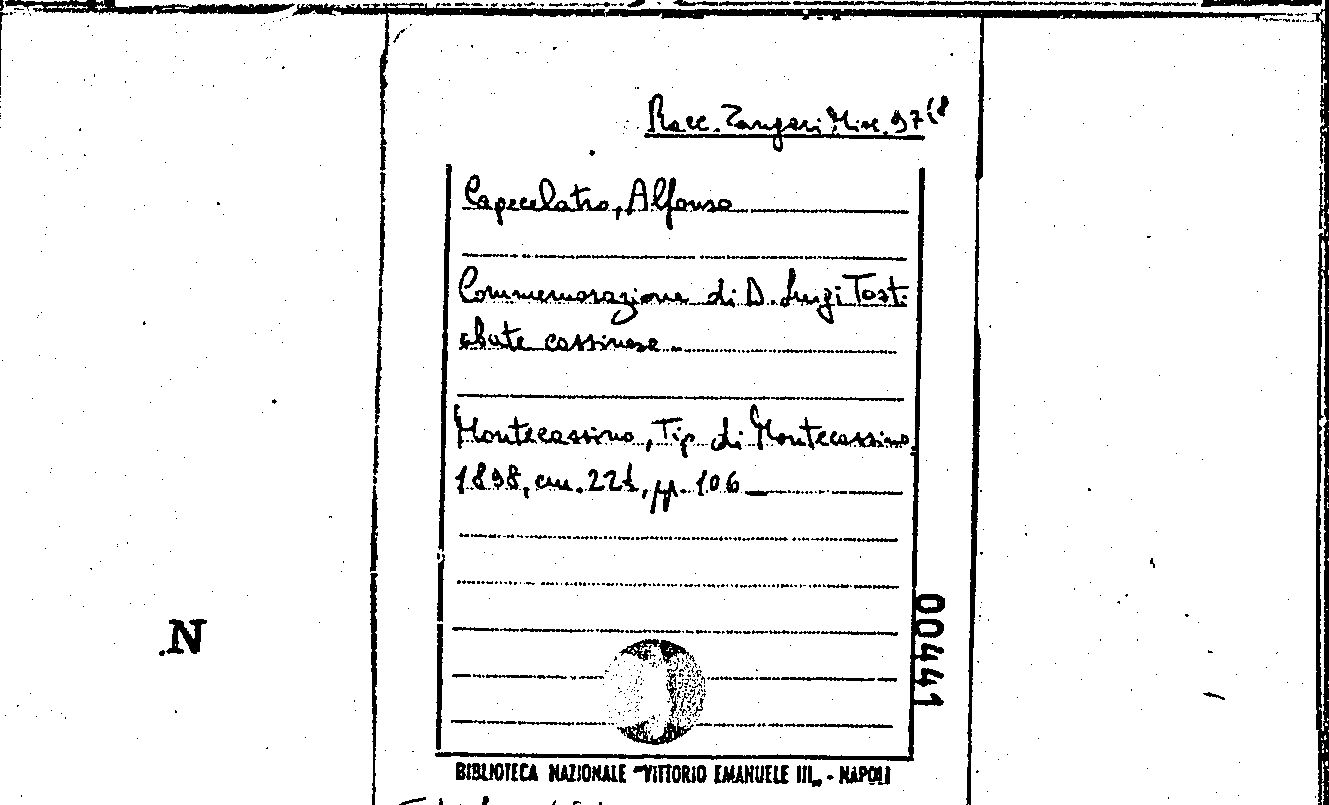 Racc. Zangari Misc. 97(8
Capecelatro, Alfonso
Commemorazione di D. Luigi Tosti
abate cassinese
Montecassino, Tip. di Montecassino,
1898, cm. 22½, pp. 106
N
00441
BIBLIOTECA NAZIONALE "VITTORIO EMANUELE III„ - NAPOLI